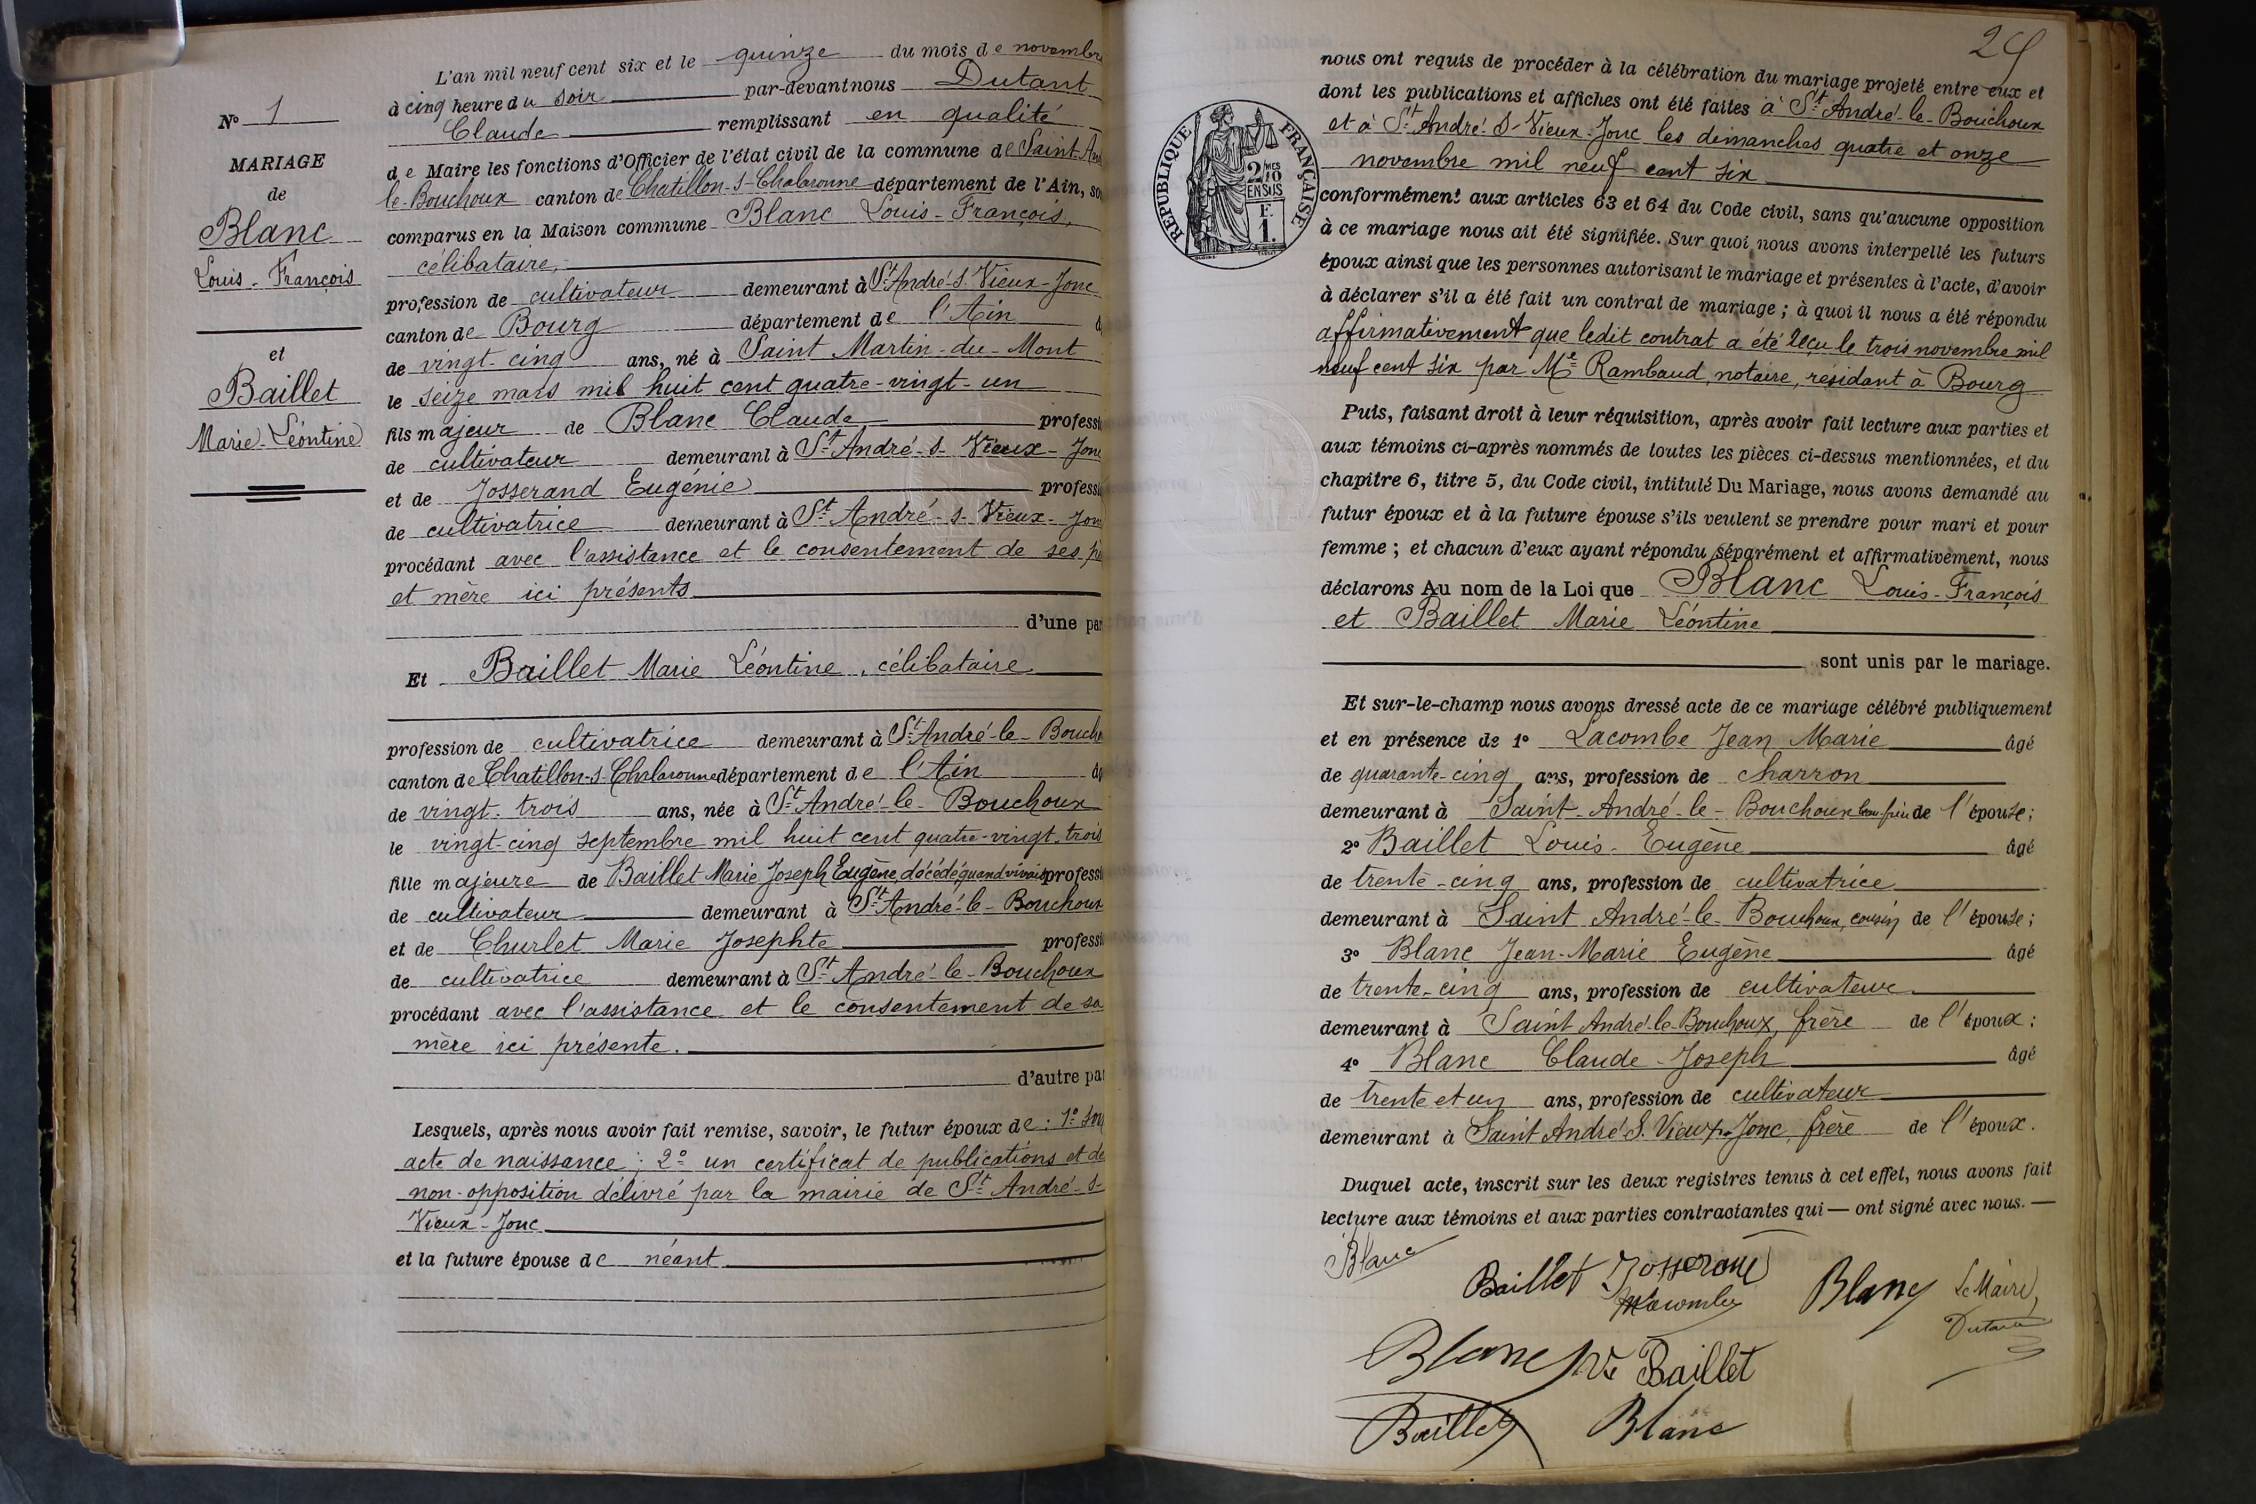 N° 1
MARIAGE
de
Blanc
Louis-François
et
Baillet
Marie-Léontine
L'an mil neuf cent six et le quinze du mois de novembre
à cinq heure du soir par-devant nous Dutant
Claude remplissant en qualité
de Maire les fonctions d'Officier de l'état civil de la commune de Saint-An
le-Bouchoux canton de Chatillon-s-Chalaronne département de l'Ain, so
comparus en la Maison commune Blanc Louis-François,
célibataire,
profession de cultivateur demeurant à St André-s-Vieux-Jonc
canton de Bourg département de l'Ain â
de vingt-cinq ans, né à Saint Martin-du-Mont
le seize mars mil huit cent quatre-vingt-un
fils majeur de Blanc Claude professi
de cultivateur demeurant à St André-s-Vieux-Jonc
et de Josserand Eugénie professi
de cultivatrice demeurant à St André-s-Vieux-Jonc
procédant avec l'assistance et le consentement de ses pè
et mère ici présents
d'une par
Et Baillet Marie Léontine, célibataire
profession de cultivatrice demeurant à St André-le-Boucho
canton de Chatillon-s-Chalaronne département de l'Ain âg
de vingt-trois ans, née à St André-le-Bouchoux
le vingt-cinq septembre mil huit cent quatre-vingt-trois
fille majeure de Baillet Marie Joseph Eugène, décédé quand vivait professi
de cultivateur demeurant à St André-le-Bouchoux
et de Churlet Marie Josephte professi
de cultivatrice demeurant à St André-le-Bouchoux
procédant avec l'assistance et le consentement de sa
mère ici présente.
d'autre par
Lesquels, après nous avoir fait remise, savoir, le futur époux de : 1° son
acte de naissance ; 2° un certificat de publications et de
non-opposition délivré par la mairie de St André-s-
Vieux-Jonc
et la future épouse de néant
29
RÉPUBLIQUE FRANÇAISE
2/10 MES
EN SUS
F.
1.
nous ont requis de procéder à la célébration du mariage projeté entre eux et
dont les publications et affiches ont été faites à St André-le-Bouchoux
et à St André-s-Vieux-Jonc les dimanches quatre et onze
novembre mil neuf cent six
conformément aux articles 63 et 64 du Code civil, sans qu'aucune opposition
à ce mariage nous ait été signifiée. Sur quoi nous avons interpellé les futurs
époux ainsi que les personnes autorisant le mariage et présentes à l'acte, d'avoir
à déclarer s'il a été fait un contrat de mariage ; à quoi il nous a été répondu
affirmativement que ledit contrat a été reçu le trois novembre mil
neuf cent six par Me Rambaud, notaire, résidant à Bourg
Puis, faisant droit à leur réquisition, après avoir fait lecture aux parties et
aux témoins ci-après nommés de toutes les pièces ci-dessus mentionnées, et du
chapitre 6, titre 5, du Code civil, intitulé Du Mariage, nous avons demandé au
futur époux et à la future épouse s'ils veulent se prendre pour mari et pour
femme ; et chacun d'eux ayant répondu séparément et affirmativement, nous
déclarons Au nom de la Loi que Blanc Louis-François
et Baillet Marie Léontine
sont unis par le mariage.
Et sur-le-champ nous avons dressé acte de ce mariage célébré publiquement
et en présence de 1° Lacombe Jean Marie âgé
de quarante-cinq ans, profession de charron
demeurant à Saint-André-le-Bouchoux beau-frère de l'épouse ;
2° Baillet Louis-Eugène âgé
de trente-cinq ans, profession de cultivatrice
demeurant à Saint André-le-Bouchoux, cousin de l'épouse ;
3° Blanc Jean-Marie Eugène âgé
de trente-cinq ans, profession de cultivateur
demeurant à Saint André-le-Bouchoux, frère de l'époux ;
4° Blanc Claude-Joseph âgé
de trente et un ans, profession de cultivateur
demeurant à Saint André S. Vieux-Jonc, frère de l'époux.
Duquel acte, inscrit sur les deux registres tenus à cet effet, nous avons fait
lecture aux témoins et aux parties contractantes qui — ont signé avec nous. —
Blanc
Baillet Josserand Blanc Le Maire,
Lacombe Dutant
Blanc Ve Baillet
Baillet Blanc